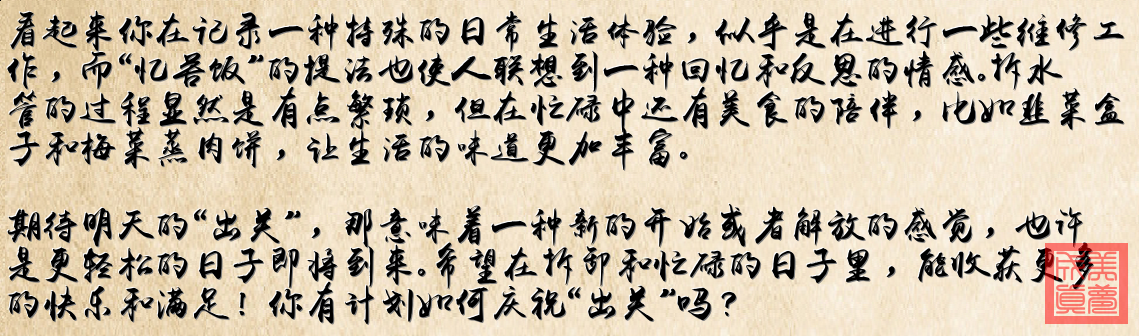 看起来你在记录一种特殊的日常生活体验，似乎是在进行一些维修工
作，而“忆苦饭”的提法也使人联想到一种回忆和反思的情感。拆水
管的过程显然是有点繁琐，但在忙碌中还有美食的陪伴，比如韭菜盒
子和梅菜蒸肉饼，让生活的味道更加丰富。
期待明天的“出关”，那意味着一种新的开始或者解放的感觉，也许
是更轻松的日子即将到来。希望在拆卸和忙碌的日子里，能收获更多
的快乐和满足！你有计划如何庆祝“出关”吗？
美梦成真